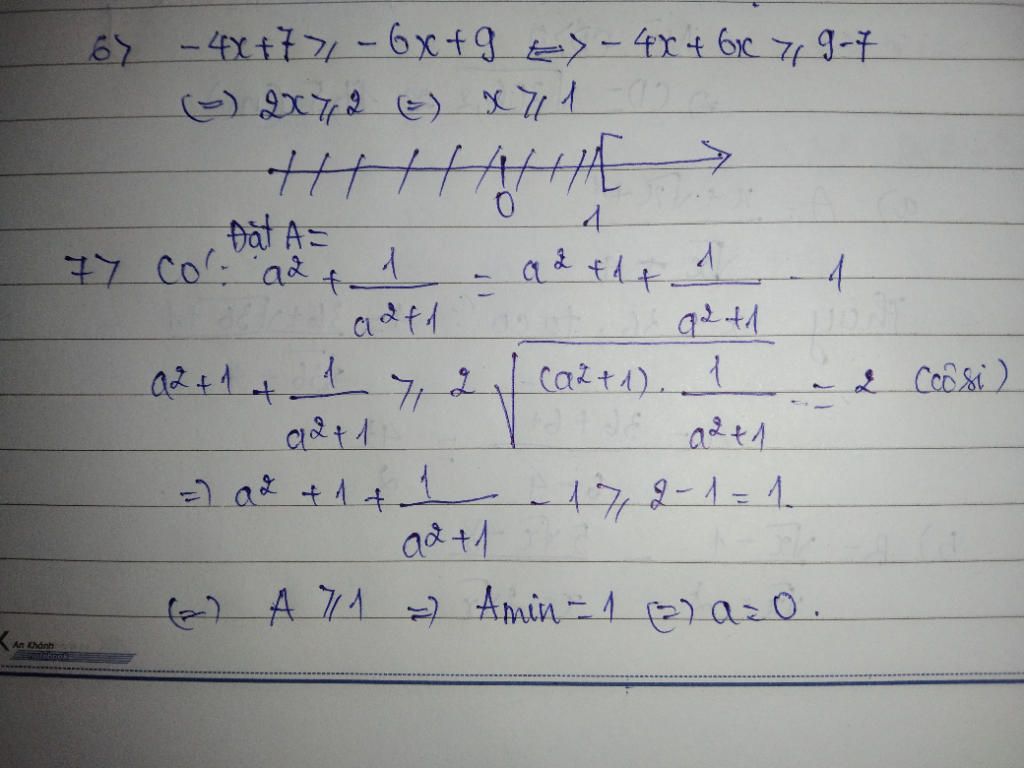 6> -4x+7 ⩾ -6x+9 <=> -4x+6x ⩾ 9-7
(=) 2x ⩾ 2 (=) x ⩾ 1
0 1
Đặt A =
7> Có: a² + 1/(a²+1) = a²+1 + 1/(a²+1) - 1
a²+1 + 1/(a²+1) ⩾ 2√((a²+1). 1/(a²+1)) = 2 (côsi)
=) a² + 1 + 1/(a²+1) - 1 ⩾ 2-1 = 1.
(=) A ⩾ 1 =) Amin = 1 (=) a = 0.
An Khánh